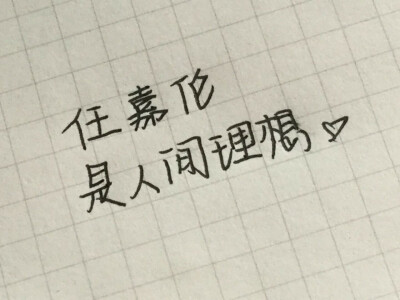 任嘉伦
是人间理想♡